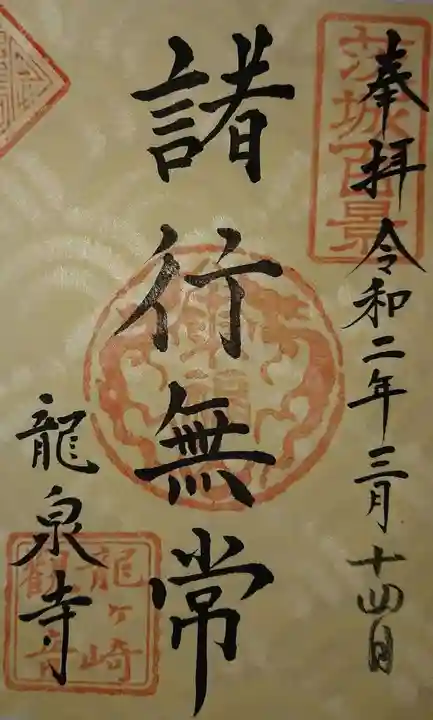 奉拝
令和二年三月十四日
茨城百景
諸行無常
龍泉寺
龍ヶ崎
観音